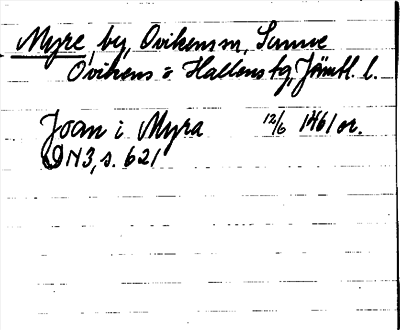 Myre, by, Ovikens sn, Sunne
Ovikens o Hallens tg, Jämtl. l.
Joan i Myra 12/6 1461 or.
DN3, s. 621